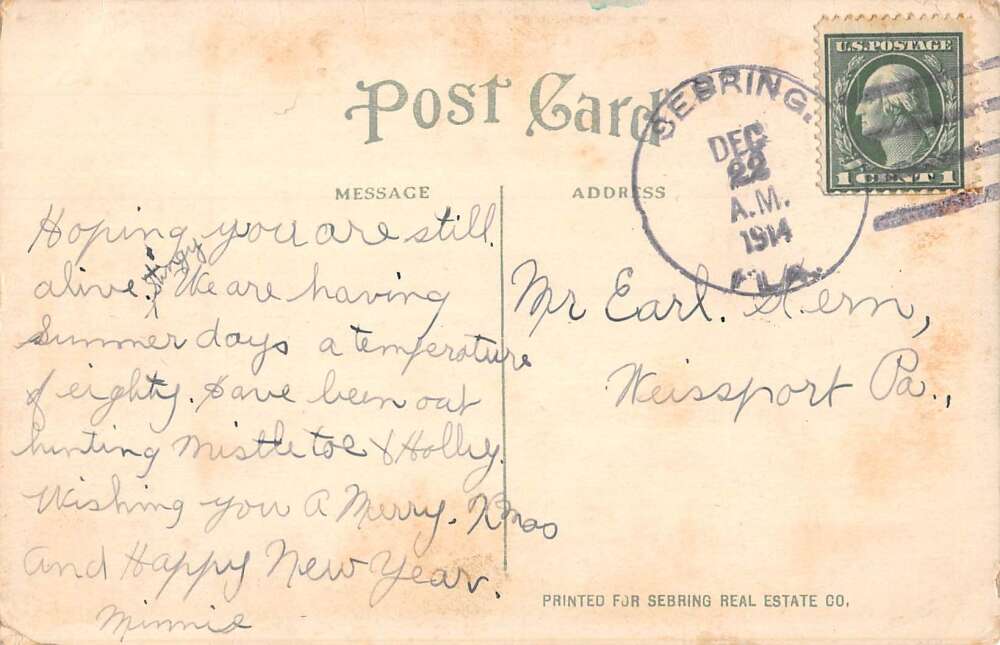 Post Card
SEBRING.
DEC
22
A.M.
1914
FLA.
U.S. POSTAGE
1 CENT 1
MESSAGE
ADDRESS
Hoping you are still
alive. & stingy We are having
Summer days a temperature
of eighty. Have been out
hunting Mistletoe & Holly.
Wishing you A Merry. Xmas
And Happy New Year.
Minnie
Mr Earl. Stern,
Weissport Pa.,
PRINTED FOR SEBRING REAL ESTATE CO.